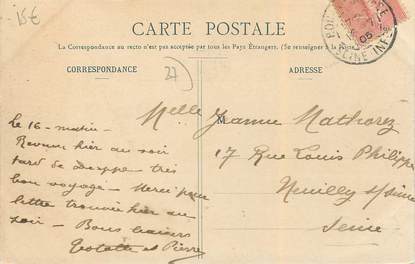 15€
CARTE POSTALE
La Correspondance au recto n'est pas acceptée par tous les Pays Étrangers. (Se renseigner à la
CORRESPONDANCE
27
ADRESSE
05
SEINE INF
Melle Jeanne Mathorez
17 Rue Louis Philippe
Neuilly s/Seine
Seine
Le 16 - matin -
Revenu hier au soir
tard de Dieppe très
bon voyage - Merci pour
lettre trouvée hier au
soir - Bons baisers
et Pierre